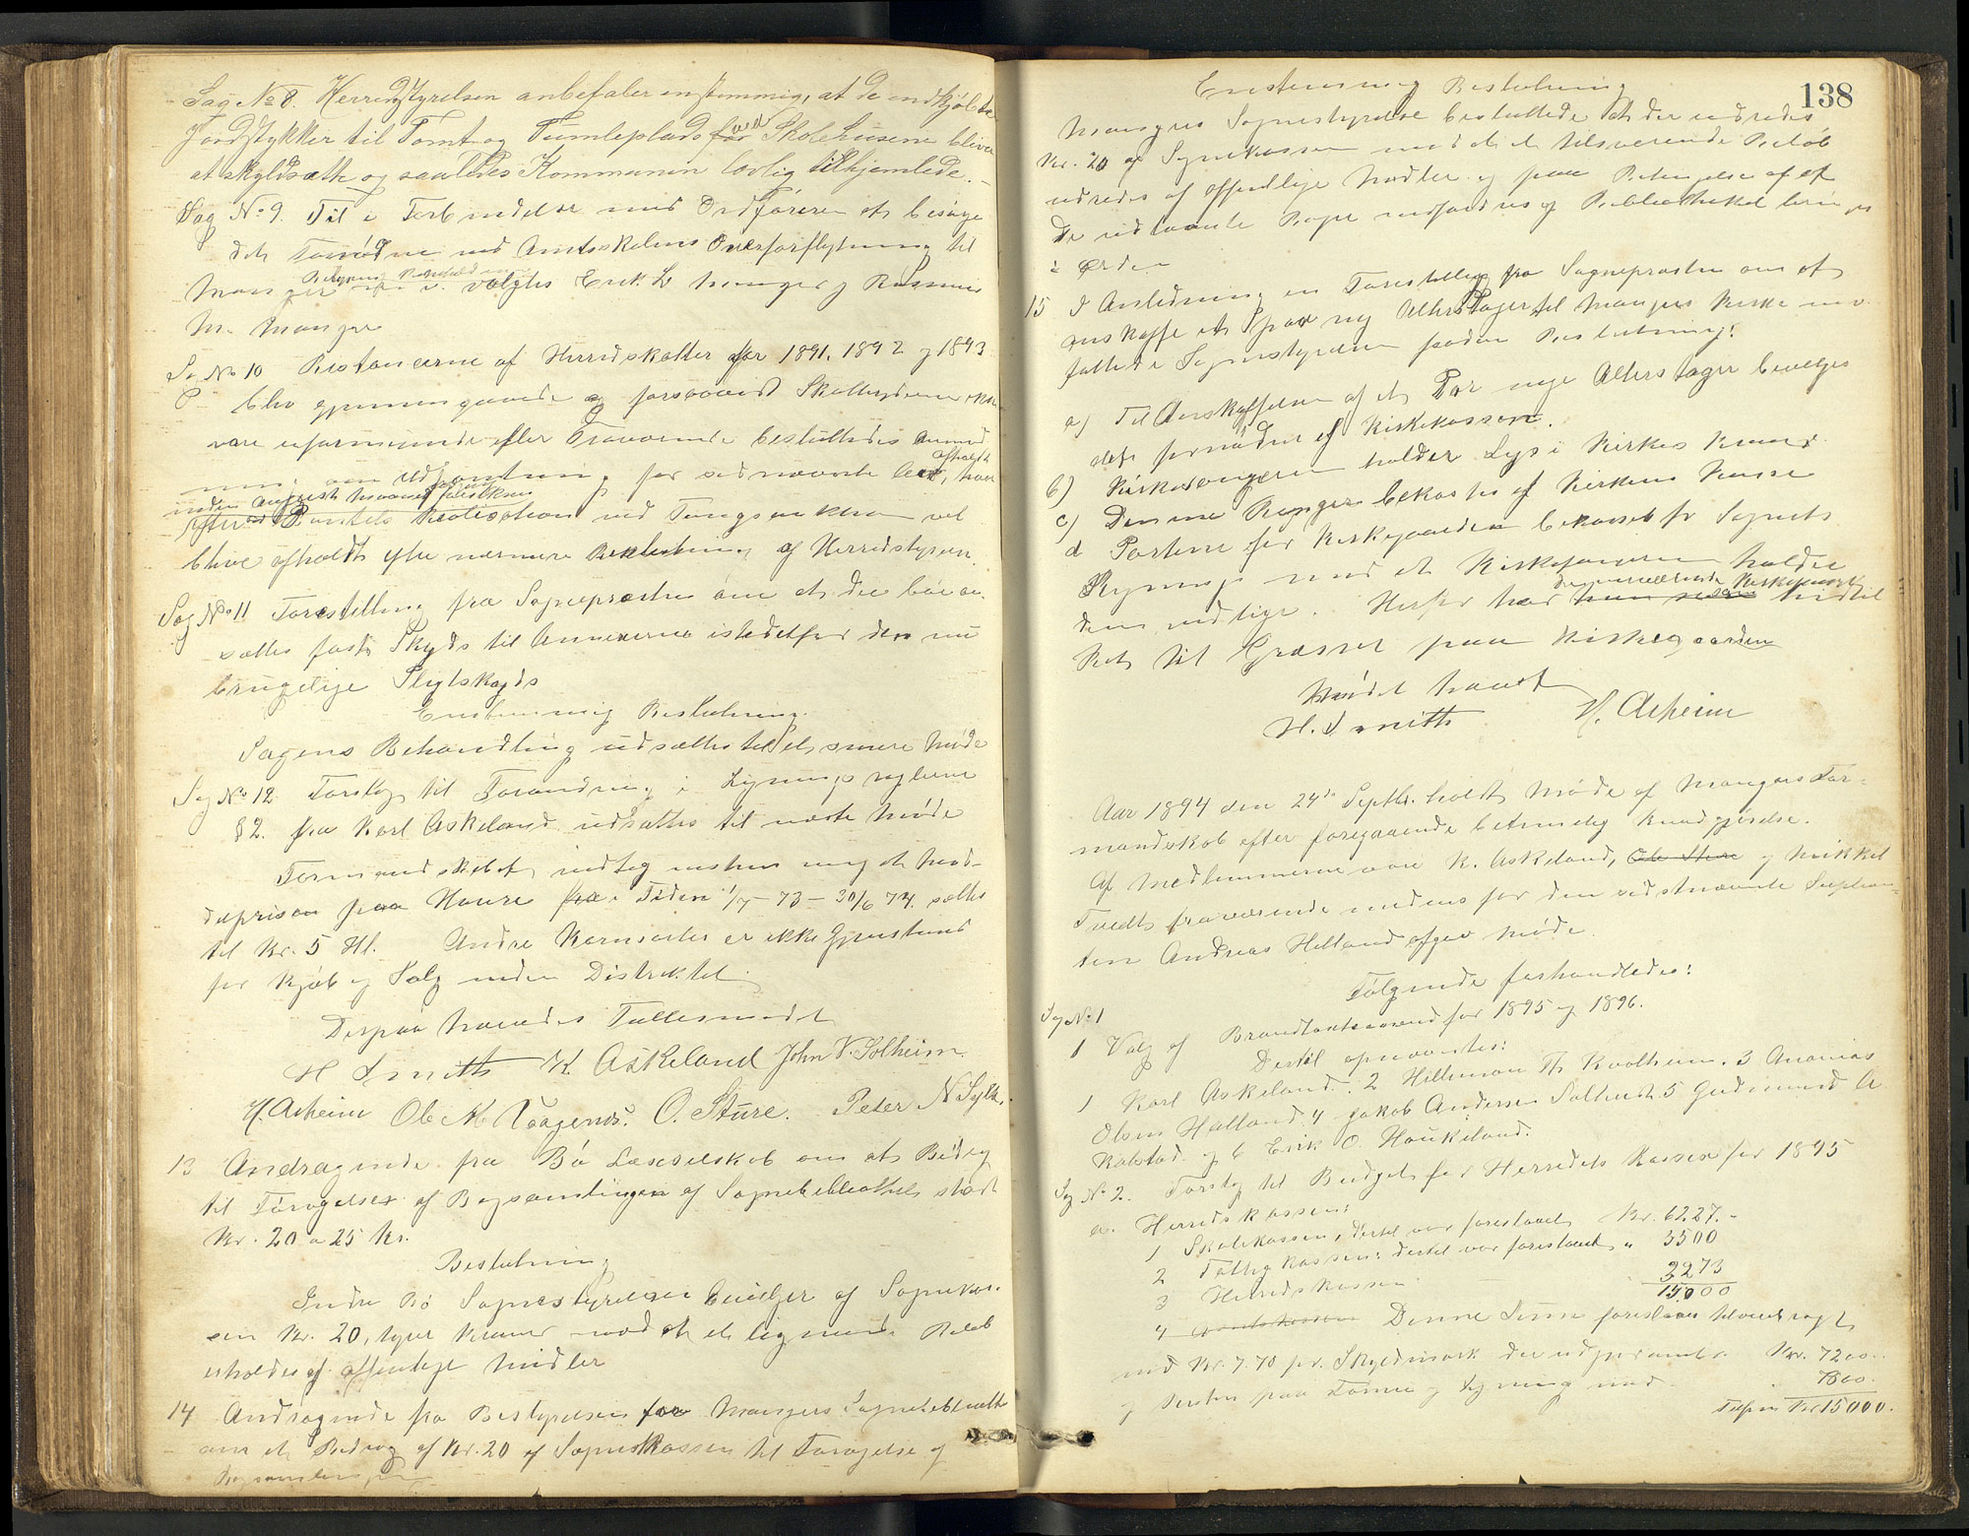 Sag No 8. Herredstyrelsen anbefaler enstemmig, at de indkjøbte
Jordstykker til Tomt og Tumleplads for ved Skolehusene bliver
at skyldsætte og saaledes Kommunen lovlig tilhjemlede.
Sag No 9. Til i Forbindelse med Ordføreren at besørge
det fornødne ved Amtsskolens Overforflytning til
Manger valgtes Erik L. Manger og Rasmus
M. Manger
Sag No 10 Restancerne af Herredskatter for 1891, 1892 og 1893
blev gjennemgaaede og forsaavidt Skatteyderne ikke
vare uformuende eller fraværende besluttedes
om Udpantning for sidnævnte afholdt
inden August Maaned
Pantets Realisation ved Tvangsauktion vil
blive afholdt efter nærmere Beslutning af Herredstyrelsen.
Sag No 11 Forestilling fra Sognepræsten om at der bør an-
sættes fast Skyds til Annexerne istedetfor den nu
brugelige Pligtskyds
Enstemmig Beslutning.
Sagens Behandling udsættes til et senere Møde
Sag No 12 Forslag til Forandring i Ligningsreglerne
§ 2. fra Karl Askeland udsættes til næste Møde
Formandskabet
delprisen paa Havre fra Tiden 1/7 - 73 - 30/6 74 sættes
til Kr. 5 Hl. Andre Kornsorter er ikke Gjenstand
for Kjøb og Salg inden Distriktet.
Derpaa hævedes Fællesmødet
H Smith K. Askeland John V. Solheim
H. Asheim Ole M. Vaagenes. O. Sture. Peter N. Sylta.
13 Andragende fra Bø Læseselskab om et Bidrag
til Forøgelser af Bogsamlingen af Sognebibliothek stort
Kr. 20 a 25 Kr.
Beslutning
Indre Bø Sognestyrelse bevilger af Sognekas-
sen Kr. 20, tyve Kroner mod at et lignende Beløb
erholdes af offentlige Midler
14 Andragende fra Bestyrelsen for Mangers Sognebibliothek
om et Bidrag af Kr. 20 af Sognekassen til Forøgelse af
Bogsamlingen
138
Enstemmig Beslutning
Mangers Sognestyrelse besluttede at der udredes
Kr. 20 af Sognekassen mod at et tilsvarende Beløb
udredes af offentlige Midler og paa Betingelse af at
de udlaante Bøger indfordres og Bibliotheket bringes
i Orden
15 I Anledning en Forestilling fra Sognepræsten om at
anskaffe et Par ny Alterstager til Mangers Kirke
fattede Sognestyrelsen saadan Beslutning:
a) Til Anskaffelsen af et Par nye Alterstager bevilges
det fornødne af Kirkekassen.
b) Kirkesangeren holder Lys i Kirkens Krone.
c) Denne Ringer bekostes af Kirkens Kasse
d Portene for Kirkegaarden bekostes for Sognets
Regning med at Kirkesangeren holder
dem vedlige. Herfor har den nuværende Kirkesanger som hidtil
Ret til Græsset paa Kirkegaarden
Mødet hævet
H. Smith H. Asheim
Aar 1894 den 24de Septbr. holdt Møde af Mangers For-
mandskab efter foregaaende betimelig Kundgjørelse.
Af Medlemmerne vare K. Askeland, Ole Sture og Mikkel
Tvedt fraværende medens for den sidstnævnte Supleanten
Andreas Helland afgav Møde.
Følgende forhandledes:
Sag No 1
1 Valg af Brandtaxtmænd for 1895 og 1896.
Dertil opnævntes:
1 Karl Askeland. 2 Hilleman Th. Kvalheim. 3 Ananias
Olsen Halland 4 Jakob Andersen Solheim 5 Gudmund A
og 6 Erik O. Haukeland.
Sag No 2. Forslag til Budget for Herredets Kasser for 1895
a. Herredskassen:
1 Skolekassen, dertil var foreslaaet Kr. 6227.-
2 Fattigkassen: dertil var foreslaaet " 5500
3 Herredskassen 3273
15000
4 Amtskassen Denne Sum foreslaaes tilveiebragt
med Kr. 7.70 pr. Skyldmark der udgjør omtr. Kr. 7200.
og Resten paa Formue og Ligning med 7800.
Tilsm Kr 15000.